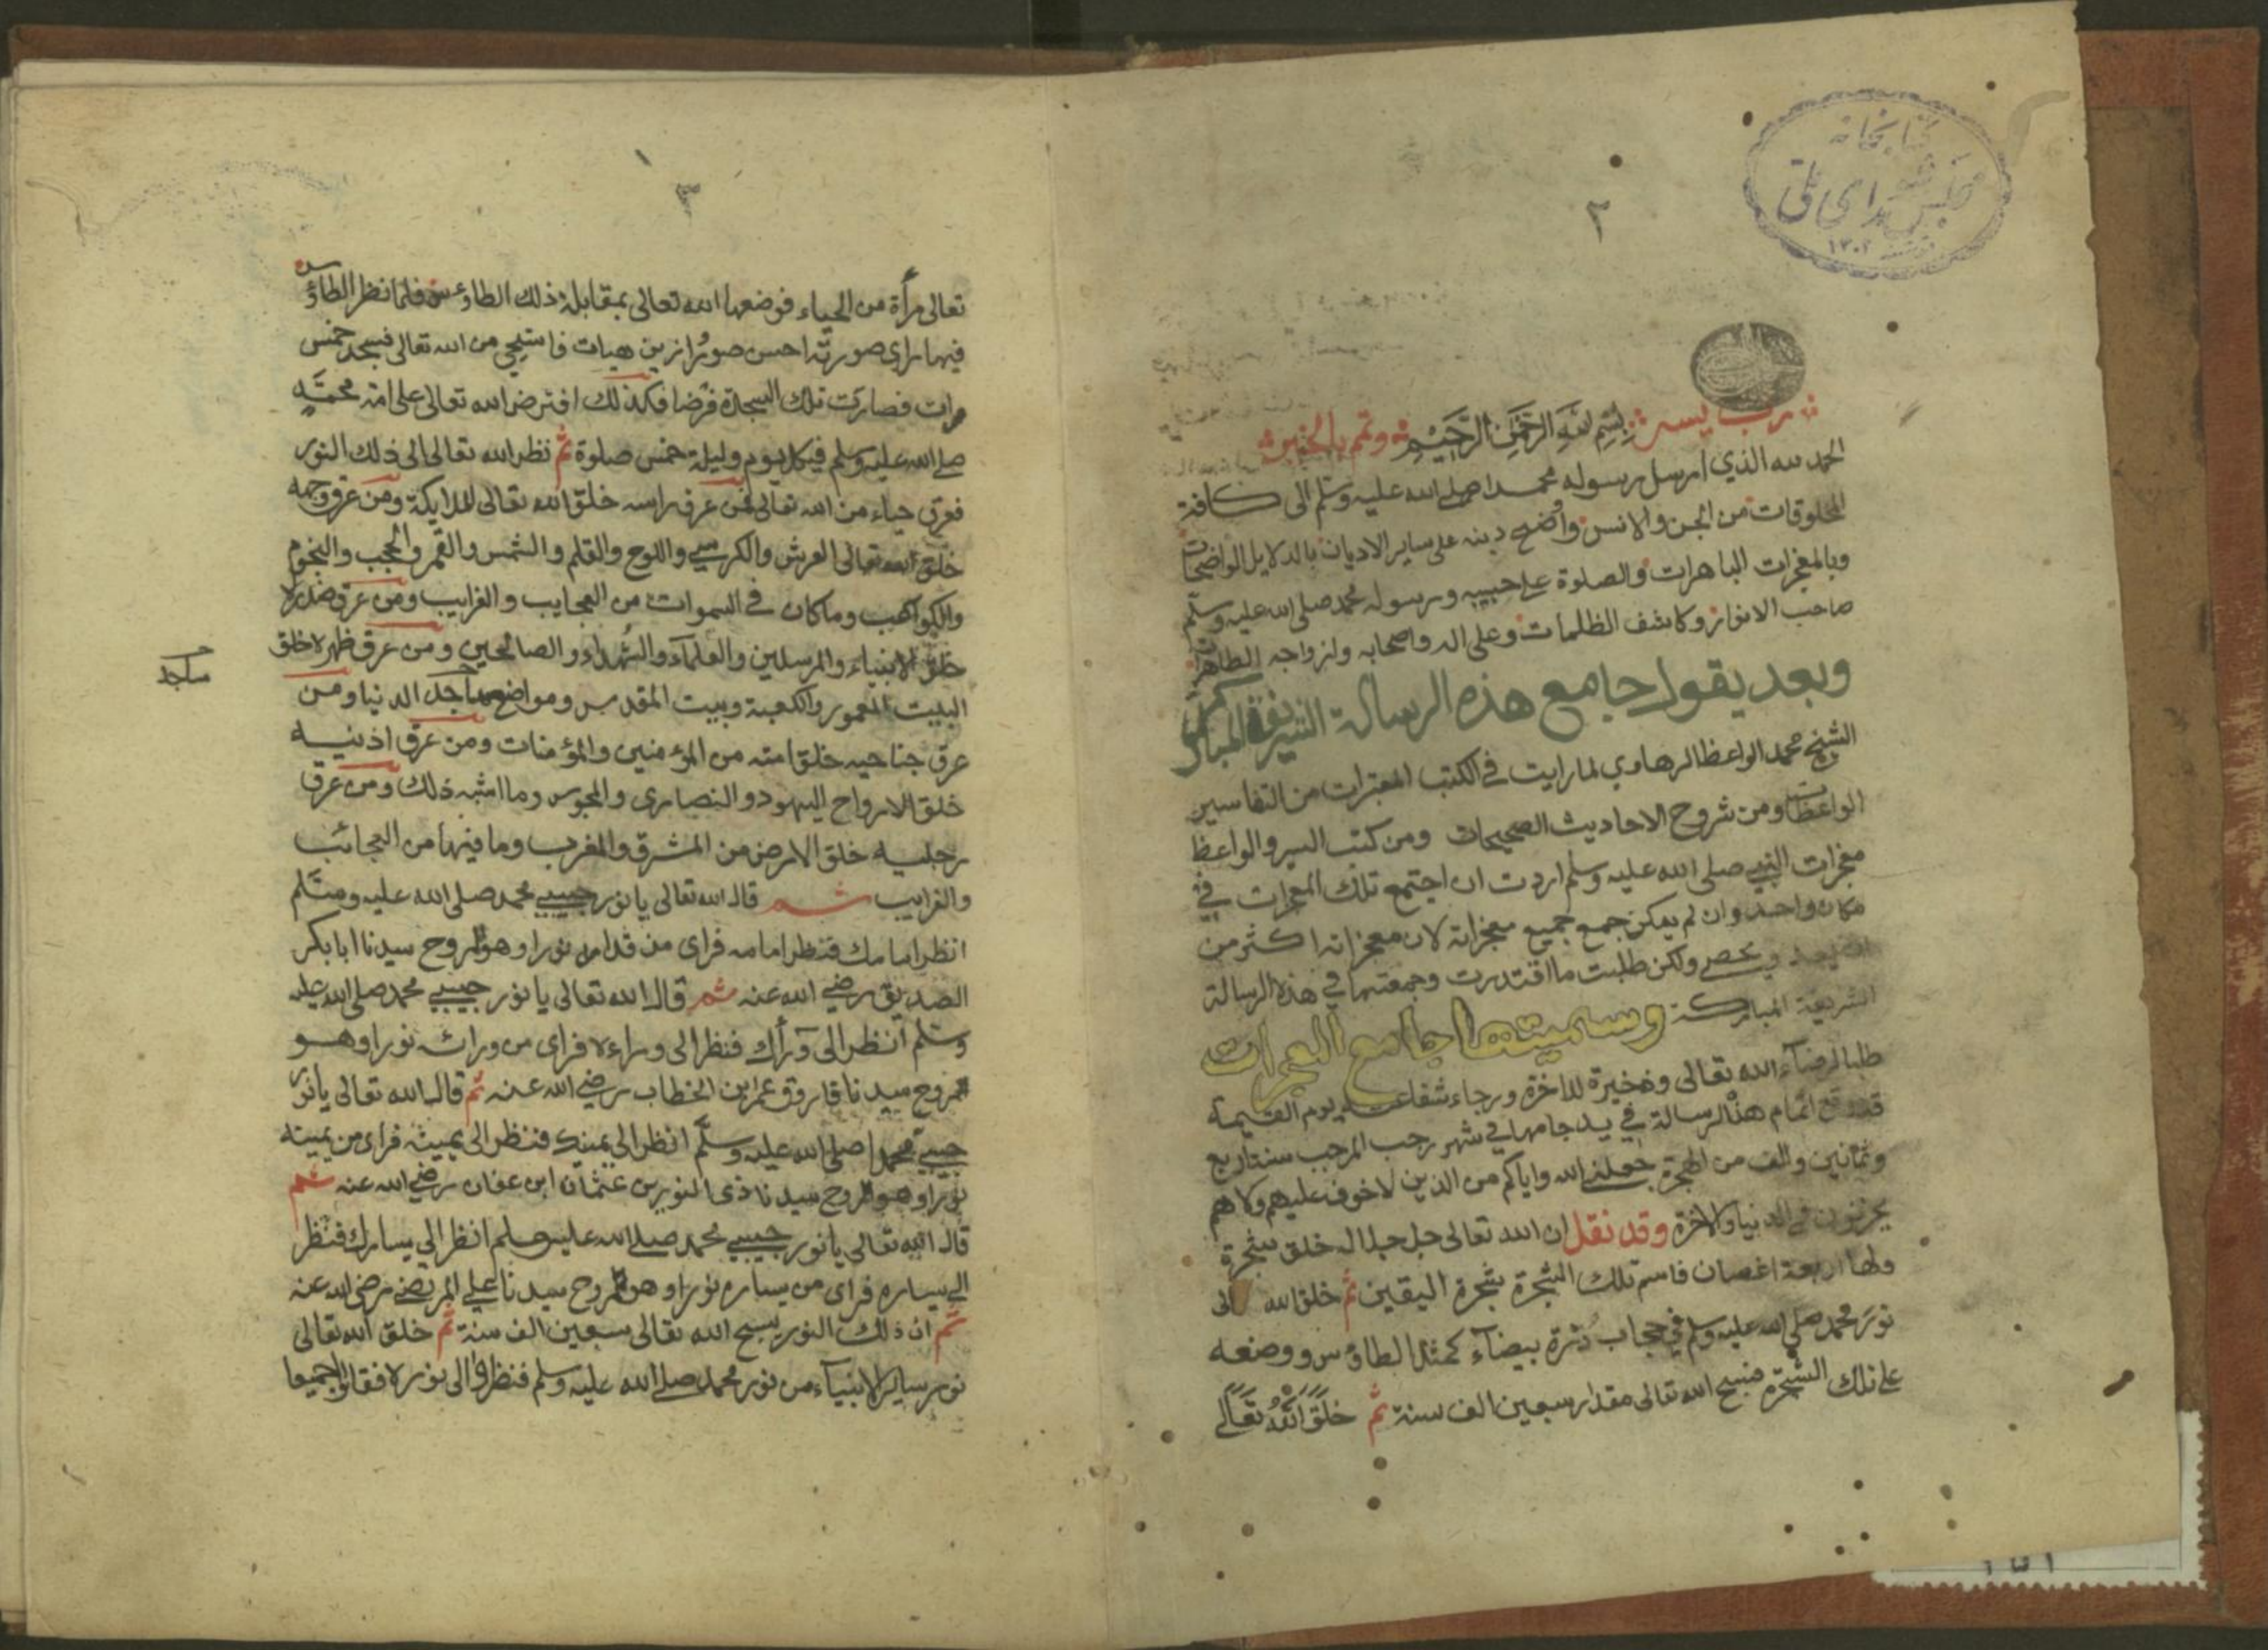 كتابخانه
مجلس شورای ملی
١٣٠٢
٢
رب يسر بسم الله الرحمن الرحيم وتمم بالخير
الحمد لله الذي ارسل رسوله محمدا صلى الله عليه وسلم الى كافة
المخلوقات من الجن والانس واوضح دينه على ساير الاديان بالدلايل الواضحات
وبالمعجزات الباهرات والصلوة على حبيبه ورسوله محمد صلى الله عليه وسلم
صاحب الانوار وكاشف الظلمات وعلى اله واصحابه وازواجه الطاهرات
وبعد يقول جامع هذه الرسالة الشريفة المباركة
الشيخ محمد الواعظ الرهاوي لما رايت في الكتب المعتبرات من التفاسير
الواعظات ومن شروح الاحاديث الصحيحات ومن كتب السير والواعظ
معجزات النبي صلى الله عليه وسلم اردت ان اجتمع تلك المعجزات في
مكان واحد وان لم يمكن جمع جميع معجزاته لان معجزاته اكثر من
ان يعد ويحصى ولكن طلبت ما اقتدرت وجمعتها في هذه الرسالة
الشريفة المباركة وسميتها جامع المعجزات
طلبا لرضاء الله تعالى وذخيرة للاخرة ورجاء شفاعته يوم القيمة
قد وقع اتمام هذ الرسالة في يد جامعها في شهر رجب المرجب سنة اربع
وثمانين والف من الهجرة جعلني الله واياكم من الذين لا خوف عليهم ولا هم
يحزنون في الدنيا والاخرة وقد نقل ان الله تعالى جل جلاله خلق شجرة
ولها اربعة اغصان فاسم تلك الشجرة شجرة اليقين ثم خلق الله
نور محمد صلى الله عليه وسلم في حجاب درة بيضاء كمثل الطاؤس ووضعه
على تلك الشجرة فسبح الله تعالى مقدار سبعين الف سنة ثم خلق الله تعالى
٣
تعالى مرأة من الحياء فوضعها الله تعالى بمقابلة ذلك الطاوس فلما نظر الطاؤس
فيها راى صورته احسن صورا ازين هيات فاستحيى من الله تعالى فسجد خمس
مرات فصارت تلك السجدة فرضا فكذلك افترض الله تعالى على امة محمد
صلى الله عليه وسلم في كل يوم وليلة خمس صلوة ثم نظر الله تعالى الى ذلك النور
فعرق حياء من الله تعالى فمن عرق راسه خلق الله تعالى الملايكة ومن عرق وجهه
خلق الله تعالى العرش والكرسي واللوح والقلم والشمس والقمر والحجب والنجوم
والكواكب وما كان في السموات من العجايب والغرايب ومن عرق صدره
خلق الانبياء والمرسلين والعلماء والشهداء والصالحين ومن عرق ظهره خلق
البيت المعمور والكعبة وبيت المقدس ومواضع مساجد الدنيا ومن
مساجد
عرق جناحيه خلق امته من المؤمنين والمؤمنات ومن عرق اذنيه
خلق الارواح اليهود والنصارى والمجوس وما اشبه ذلك ومن عرق
رجليه خلق الارض من المشرق والمغرب وما فيها من العجائب
والغرايب ثم قال الله تعالى يا نور حبيبي محمد صلى الله عليه وسلم
انظر امامك فنظر امامه فراى من قدامه نورا وهو روح سيدنا ابا بكر
الصديق رضي الله عنه ثم قال الله تعالى يا نور حبيبي محمد صلى الله عليه
وسلم انظر الى وراك فنظر الى وراءه فراى من ورائه نورا وهو
روح سيدنا فاروق عمر ابن الخطاب رضي الله عنه ثم قال الله تعالى يا نور
حبيبي محمدا صلى الله عليه وسلم انظر الى يمينك فنظر الى يمينه فراى من يمينه
نورا وهو روح سيدنا ذى النورين عثمان ابن عفان رضي الله عنه ثم
قال الله تعالى يا نور حبيبي محمد صلى الله عليه وسلم انظر الى يسارك فنظر
الى يساره فراى من يساره نورا وهو روح سيدنا علي المرتضى رضى الله عنه
ثم ان ذلك النور يسبح الله تعالى سبعين الف سنة ثم خلق الله تعالى
نور ساير الانبياء من نور محمد صلى الله عليه وسلم فنظروا الى نوره فقالوا جميعا